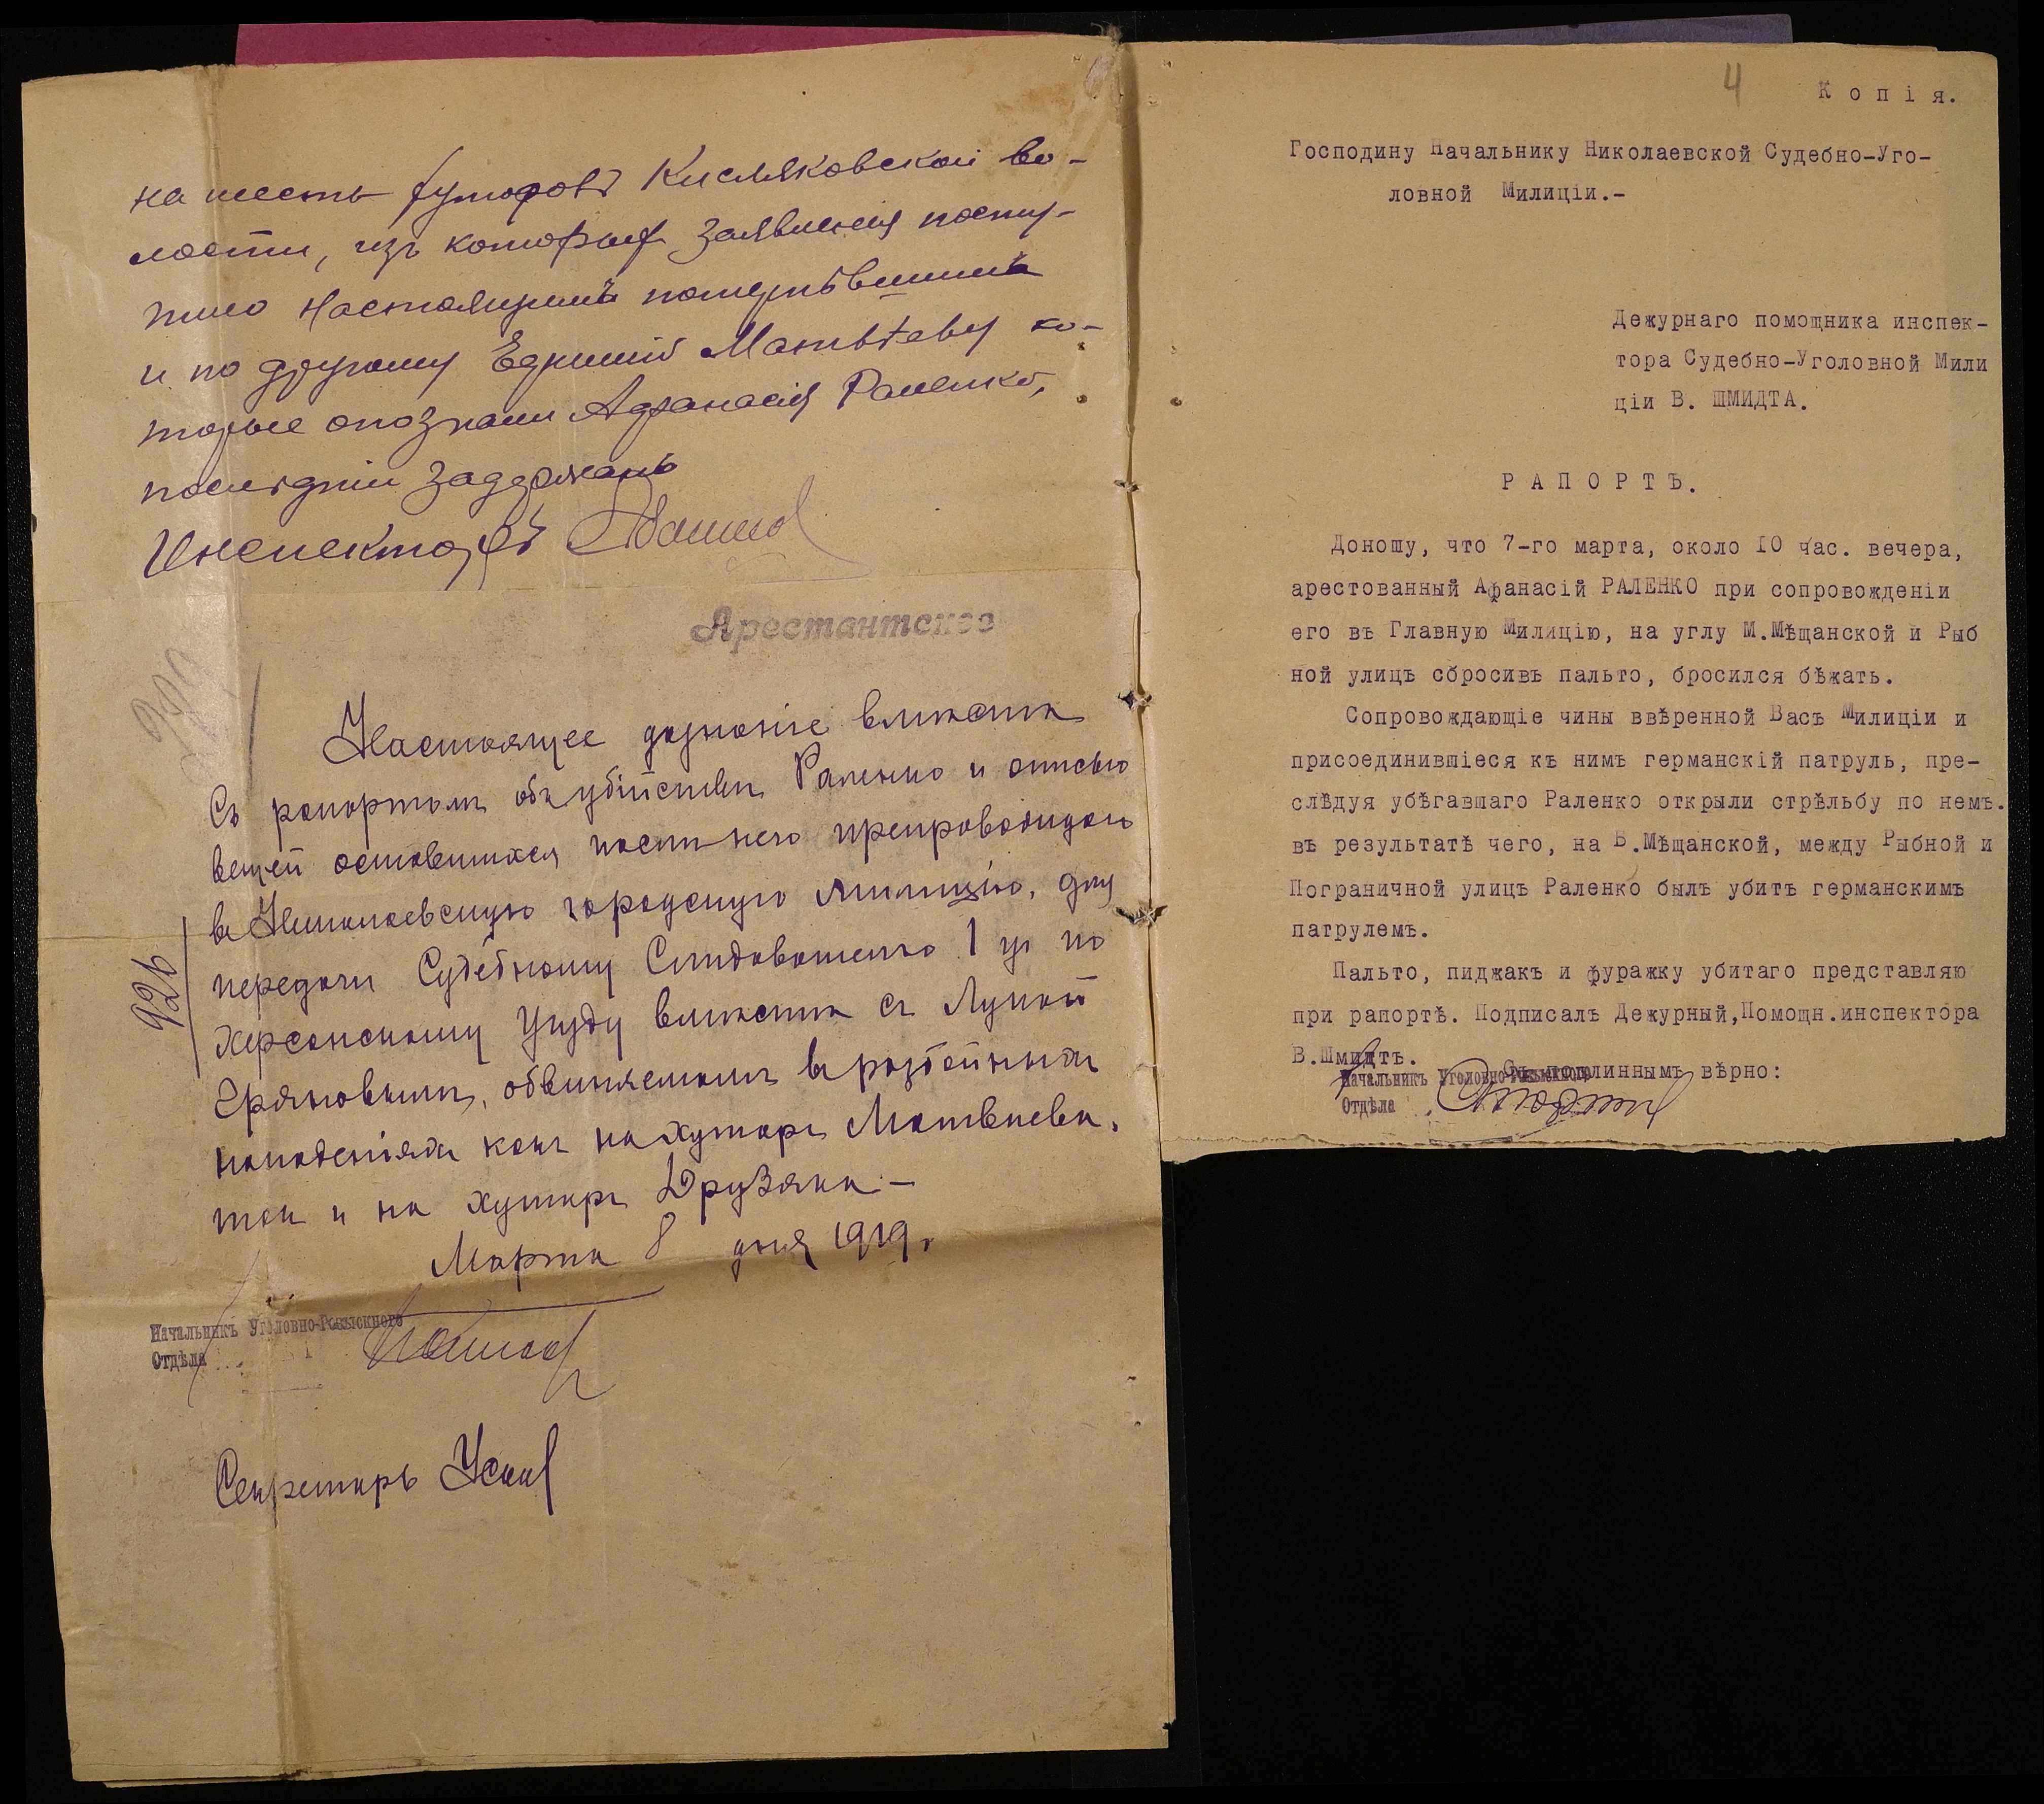 на шесть хуторовъ Кисляковской во-
лости, изъ которых заявленія посту-
пило настоящимъ потерпѣвшимъ
и по другому Матвѣеву ко-
торые опознали Афанасія Раленко,
послѣдній задержанъ
Инспекторъ
Арестантское
Настоящее дознаніе вмѣстѣ
съ рапортомъ объ убійствѣ Раленко и описью
вещей оставшихся послѣ него препроводить
въ Николаевскую городскую милицію, для
передачи Судебному Слѣдователю 1 уч по
Херсонскому уѣзду вмѣстѣ съ Лукой
обвиняемымъ въ разбойныхъ
нападеніяхъ какъ на хуторъ Матвѣева,
такъ и на хуторъ Друзяка.—
Марта 8 дня 1919 г.
926
Начальникъ Уголовно-Розыскного
Отдѣла
Секретарь
4
Копія.
Господину Начальнику Николаевской Судебно-Уго-
ловной Милиціи.-
Дежурнаго помощника инспек-
тора Судебно-Уголовной Мили
ціи В. ШМИДТА.
РАПОРТЪ.
Доношу, что 7-го марта, около 10 час. вечера,
арестованный Афанасій РАЛЕНКО при сопровожденіи
его въ Главную Милицію, на углу М.Мѣщанской и Рыб
ной улицъ сбросивъ пальто, бросился бѣжать.
Сопровождающіе чины ввѣренной Васъ Милиціи и
присоединившіеся къ нимъ германскій патруль, пре-
слѣдуя убѣгавшаго Раленко открыли стрѣльбу по немъ.
въ результатѣ чего, на Б.Мѣщанской, между Рыбной и
Пограничной улицъ Раленко былъ убитъ германскимъ
патрулемъ.
Пальто, пиджакъ и фуражку убитаго представляю
при рапортѣ. Подписалъ Дежурный,Помощн.инспектора
В.Шмидтъ.
Съ подлиннымъ вѣрно:
Начальникъ Уголовно-Розыскного
Отдѣла